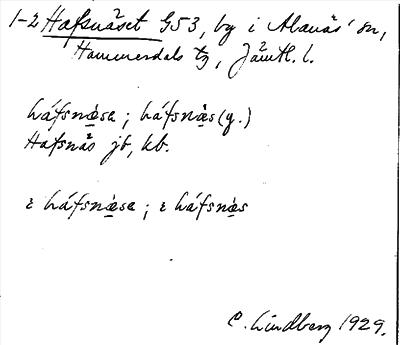 1-2 Hafsnäset G53, by i Alanäs' sn,
Hammerdals tg, Jämtl. l.
háfsnæ̀sa ; háfsnæ̀s (y.)
Hafsnäs jb, kb.
i háfsnæ̀sa ; i háfsnæ̀s
C. Lindberg 1929.